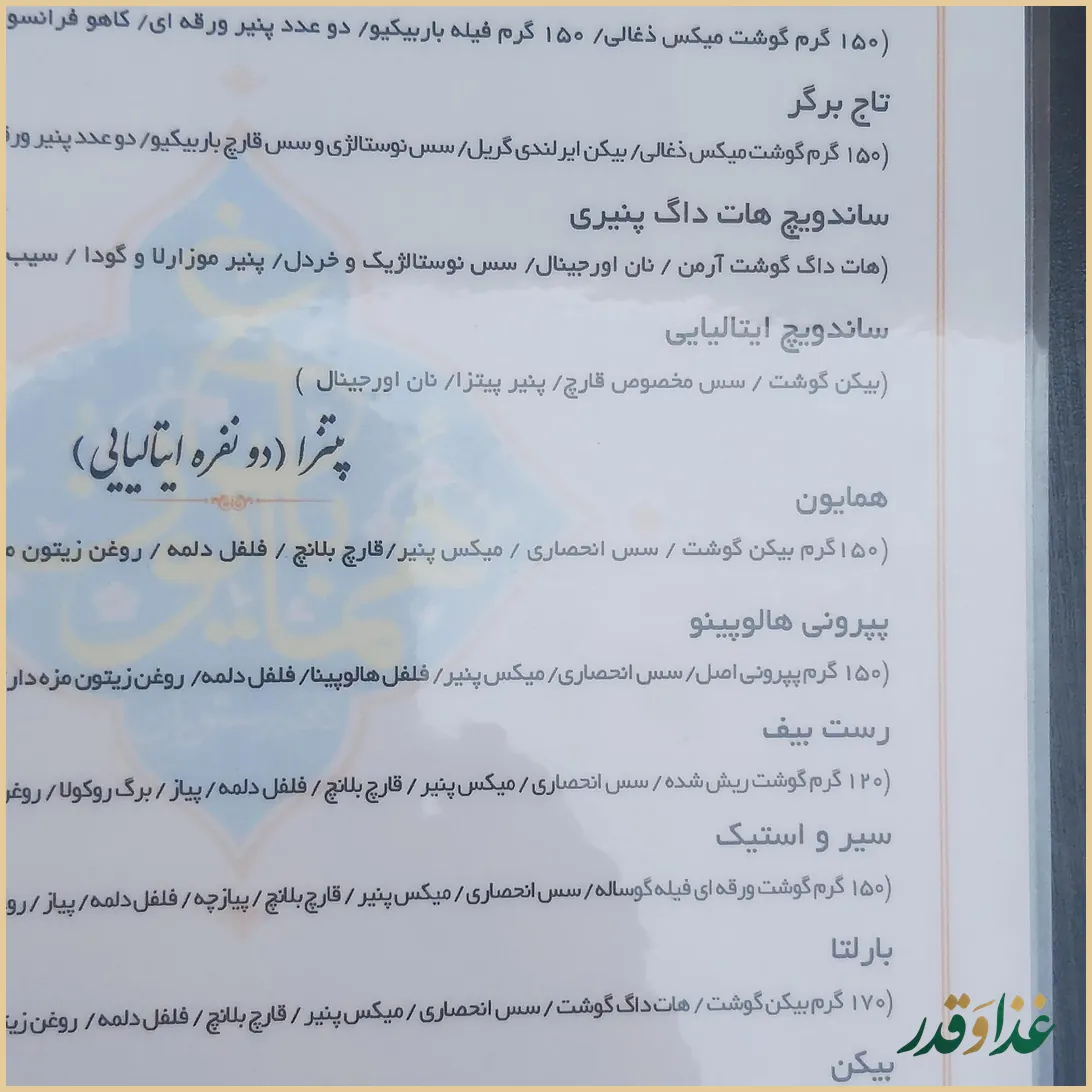 (۱۵۰ گرم گوشت میکس ذغالی/ ۱۵۰ گرم فیله باربیکیو/ دو عدد پنیر ورقه ای/ کاهو فرانسو
تاج برگر
(۱۵۰ گرم گوشت میکس ذغالی/ بیکن ایرلندی گریل/ سس نوستالژی و سس قارچ باربیکیو/ دو عدد پنیر ورق
ساندویچ هات داگ پنیری
(هات داگ گوشت آرمن / نان اورجینال/ سس نوستالژیک و خردل/ پنیر موزارلا و گودا / سیب
ساندویچ ایتالیایی
(بیکن گوشت / سس مخصوص قارچ/ پنیر پیتزا/ نان اورجینال )
پیتزا (دو نفره ایتالیایی)
همایون
(۱۵۰گرم بیکن گوشت / سس انحصاری / میکس پنیر/قارچ بلانچ / فلفل دلمه / روغن زیتون م
پپرونی هالوپینو
(۱۵۰ گرم پپرونی اصل/ سس انحصاری/ میکس پنیر/ فلفل هالوپینا/ فلفل دلمه/ روغن زیتون مزه دار
رست بیف
(۱۲۰ گرم گوشت ریش شده / سس انحصاری / میکس پنیر / قارچ بلانچ / فلفل دلمه / پیاز / برگ روکولا / روغن
سیر و استیک
(۱۵۰ گرم گوشت ورقه ای فیله گوساله / سس انحصاری / میکس پنیر / قارچ بلانچ / پیازچه / فلفل دلمه / پیاز / رو
بارلتا
(۱۷۰ گرم بیکن گوشت / هات داگ گوشت / سس انحصاری / میکس پنیر / قارچ بلانچ / فلفل دلمه / روغن زیت
بیکن
غذا و قدر